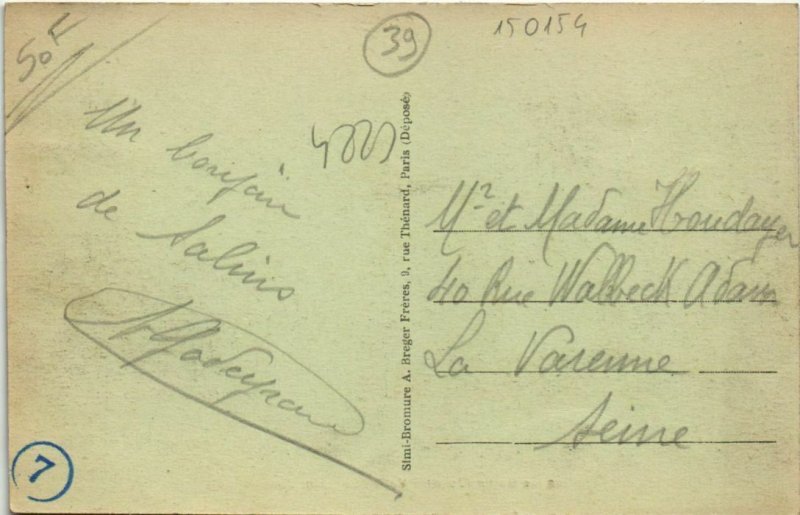 50F
39
150154
Un bonjour
de Salins
Simi-Bromure A. Breger Frères, 9, rue Thénard, Paris (Déposé)
Mr et Madame Houdayer
40 Rue Walbeck Adam
La Varenne
Seine
7